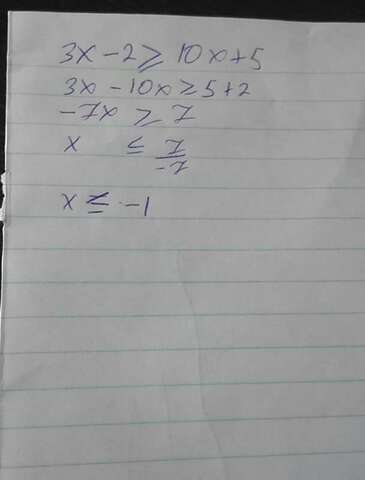 3x - 2 ≥ 10x + 5
3x - 10x ≥ 5 + 2
-7x ≥ 7
x ≤ 7/-7
x ≤ -1